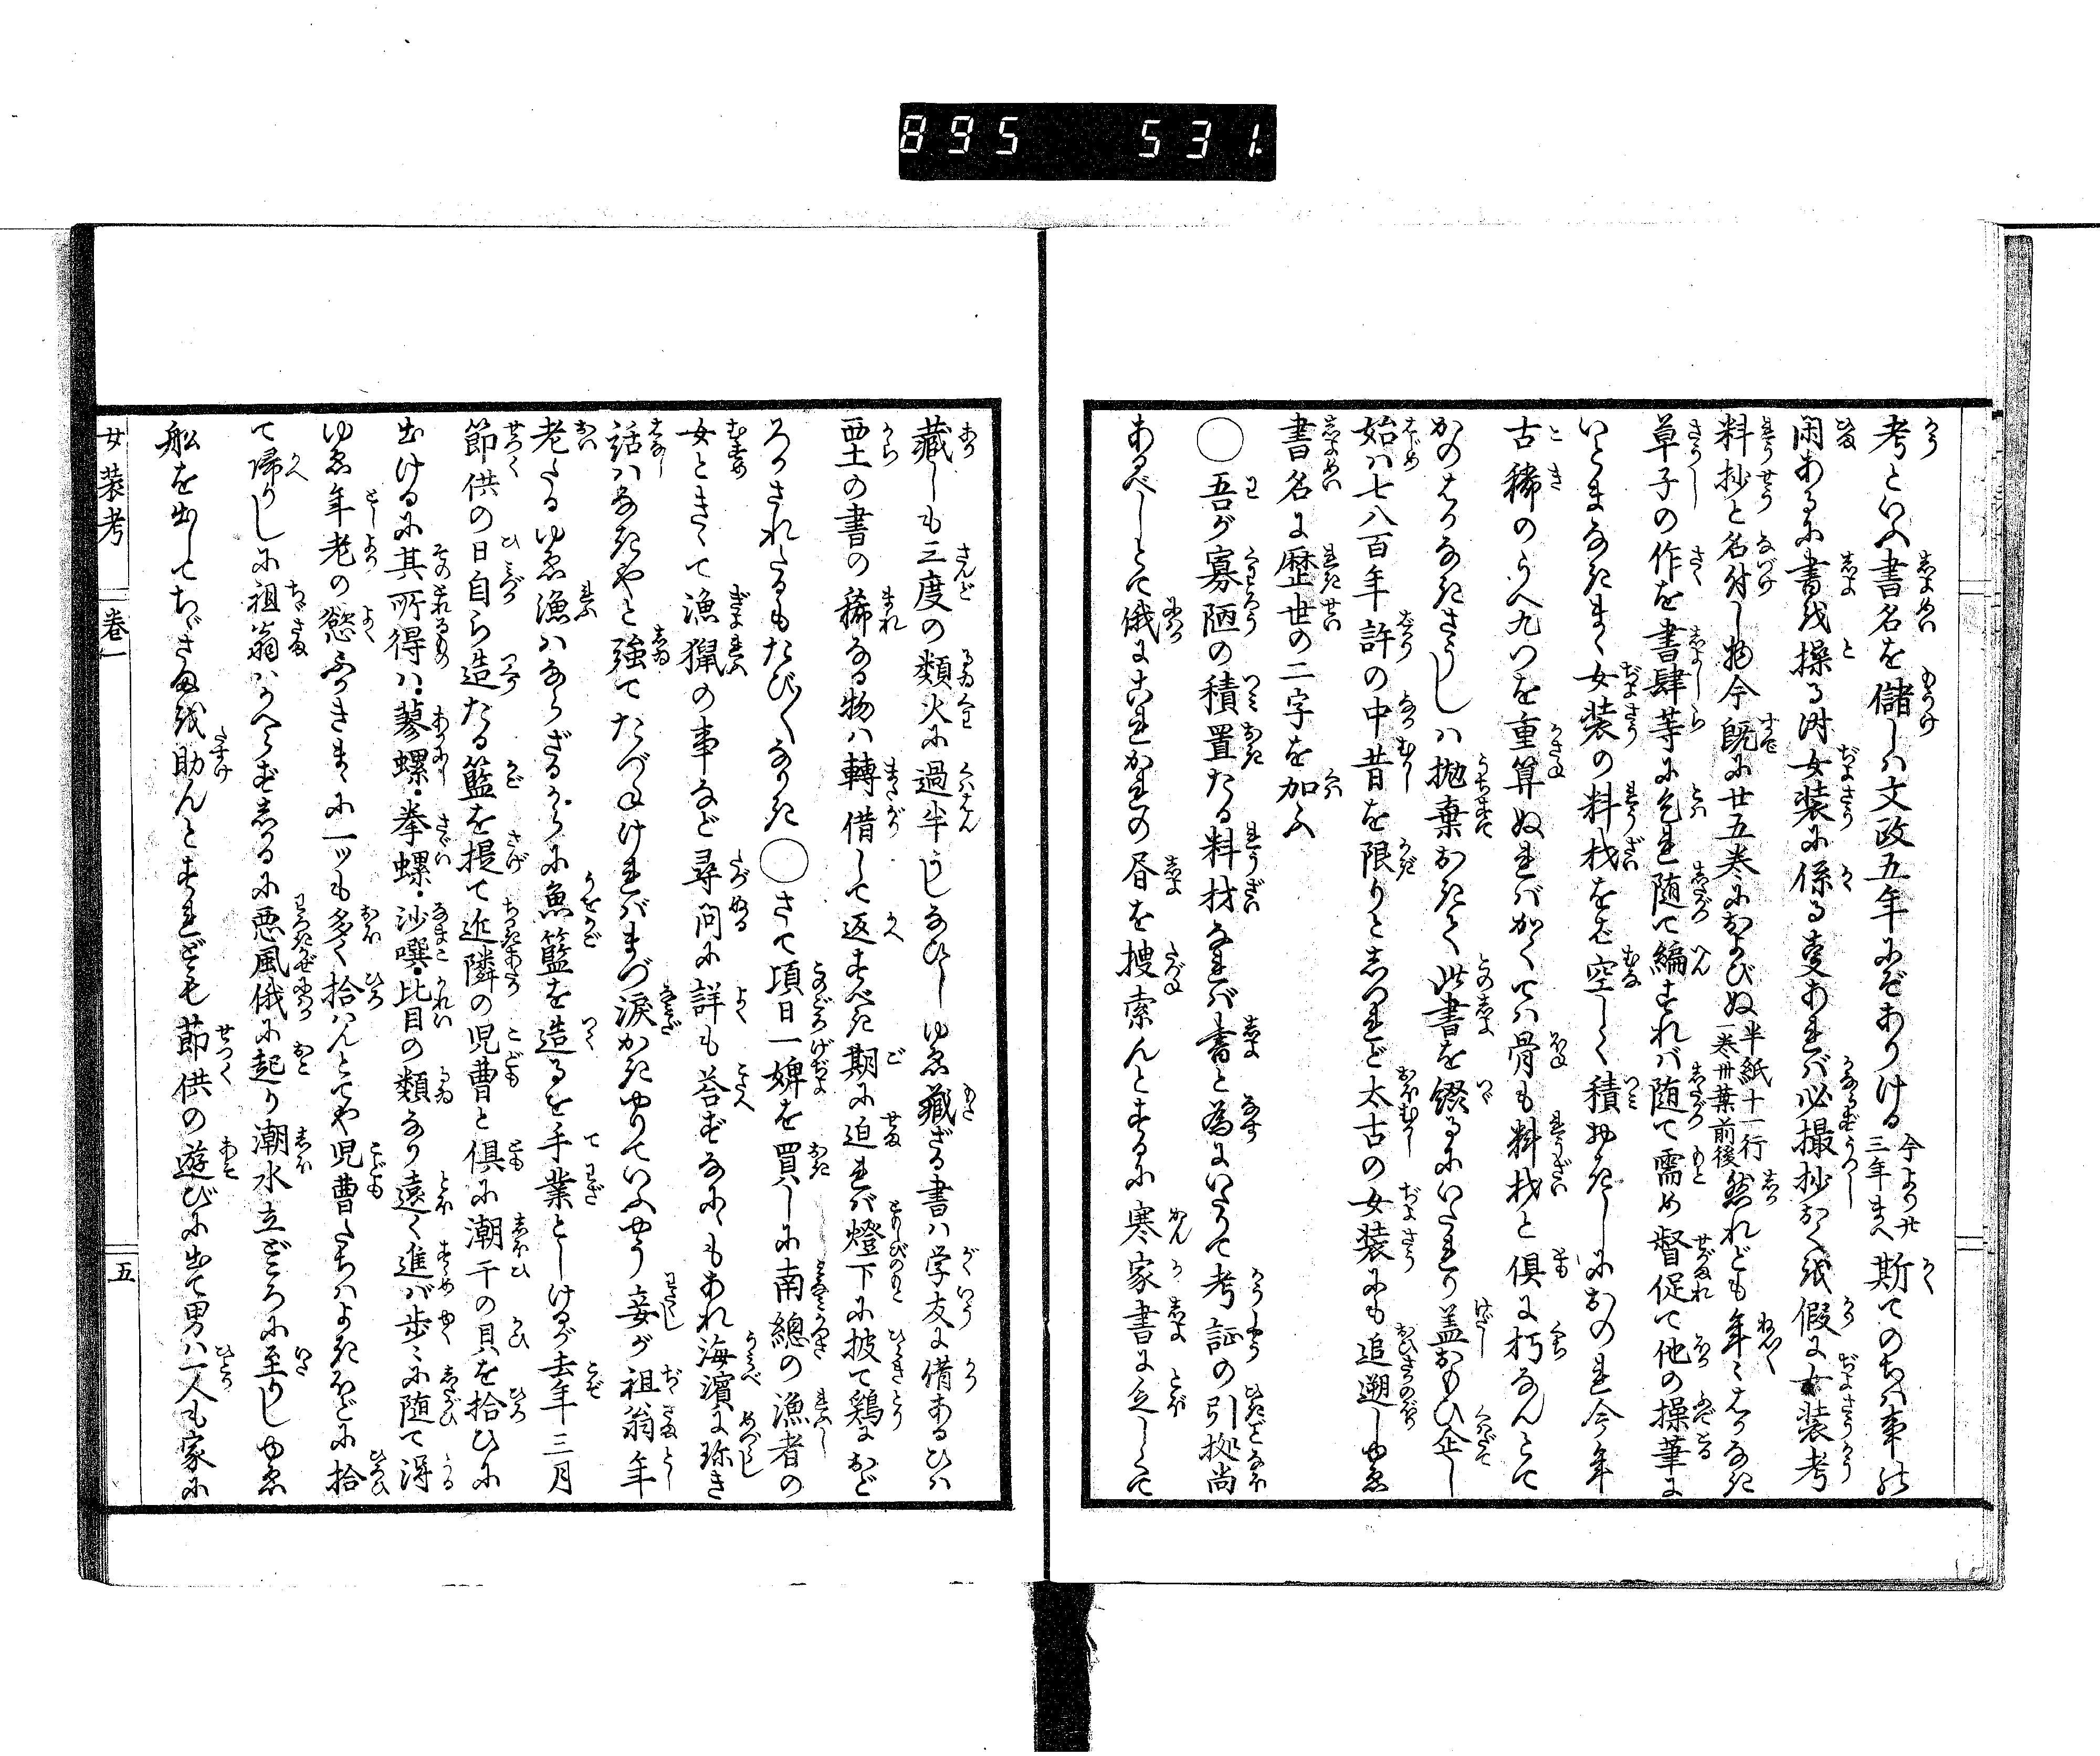 895 531.
考といふ書名を儲しハ文政五年にぞありける今より廿三年まへ斯てのちハ事の
閑あるに書を操る時女装に係る事あれバ必撮抄おくを假に女装考
料抄と名付し物今既に廿五巻におよびぬ半紙十一行一巻卅葉前後然れども年々はかなき
草子の作を書肆等に乞れ随て編すれバ随て需め督促て他の操筆に
いとまなきまゝ女装の料材をバ空しく積おきしにおのれ今年
古稀のうへ九つを重算ぬれバかくてハ骨も料材と倶に朽なんとて
かのはかなきさうしハ抛棄おきて此書を綴るにいたれり蓋おもひ企し
始ハ七八百年許の中昔を限りとしつれど太古の女装にも追遡しゆゑ
書名に歴世の二字を加ふ
○吾が寡陋の積置たる料材なれバ書と為にいたりて考証の引拠尚
あるべしとて俄にこれかれの書を捜索んとするに寒家書に乏しくて
藏しも三度の類火に過半うしなひしゆゑ藏ざる書ハ学友に借あるひハ

の書の稀なる物ハ轉借して返すべき期に迫れバ燈下に披て鶏におど
ろかされたるもたび〳〵なりき○さて項日一婢を買しに南總の漁者の
女ときゝて漁猟の事など尋問に詳も荅ずなにゝもあれ海濱に珎き
話ハなきやと強てたづねけれバまづ涙かきやりていふやう妾が祖翁年
老たるゆゑ漁ハならざるからに魚籃を造るを手業としけるが去年三月
節供の日自ら造たる籃を提て近隣の児曹と倶に潮干の貝を拾ひに
出けるに其所得ハ蓼螺・拳螺・沙噀・比目の類なり遠く進バ歩に随て得
ゆゑ年老の慾ふかきまゝに一ツも多く拾ハんとてや児曹たちハよきほどに拾
て帰りしに祖翁ハかへらずしるに悪風俄に起り潮水立どころに至りしゆゑ
舩を出してぢゞさまを助んとすれども節供の遊びに出て男ハ一人も家に
女装考
巻一
五